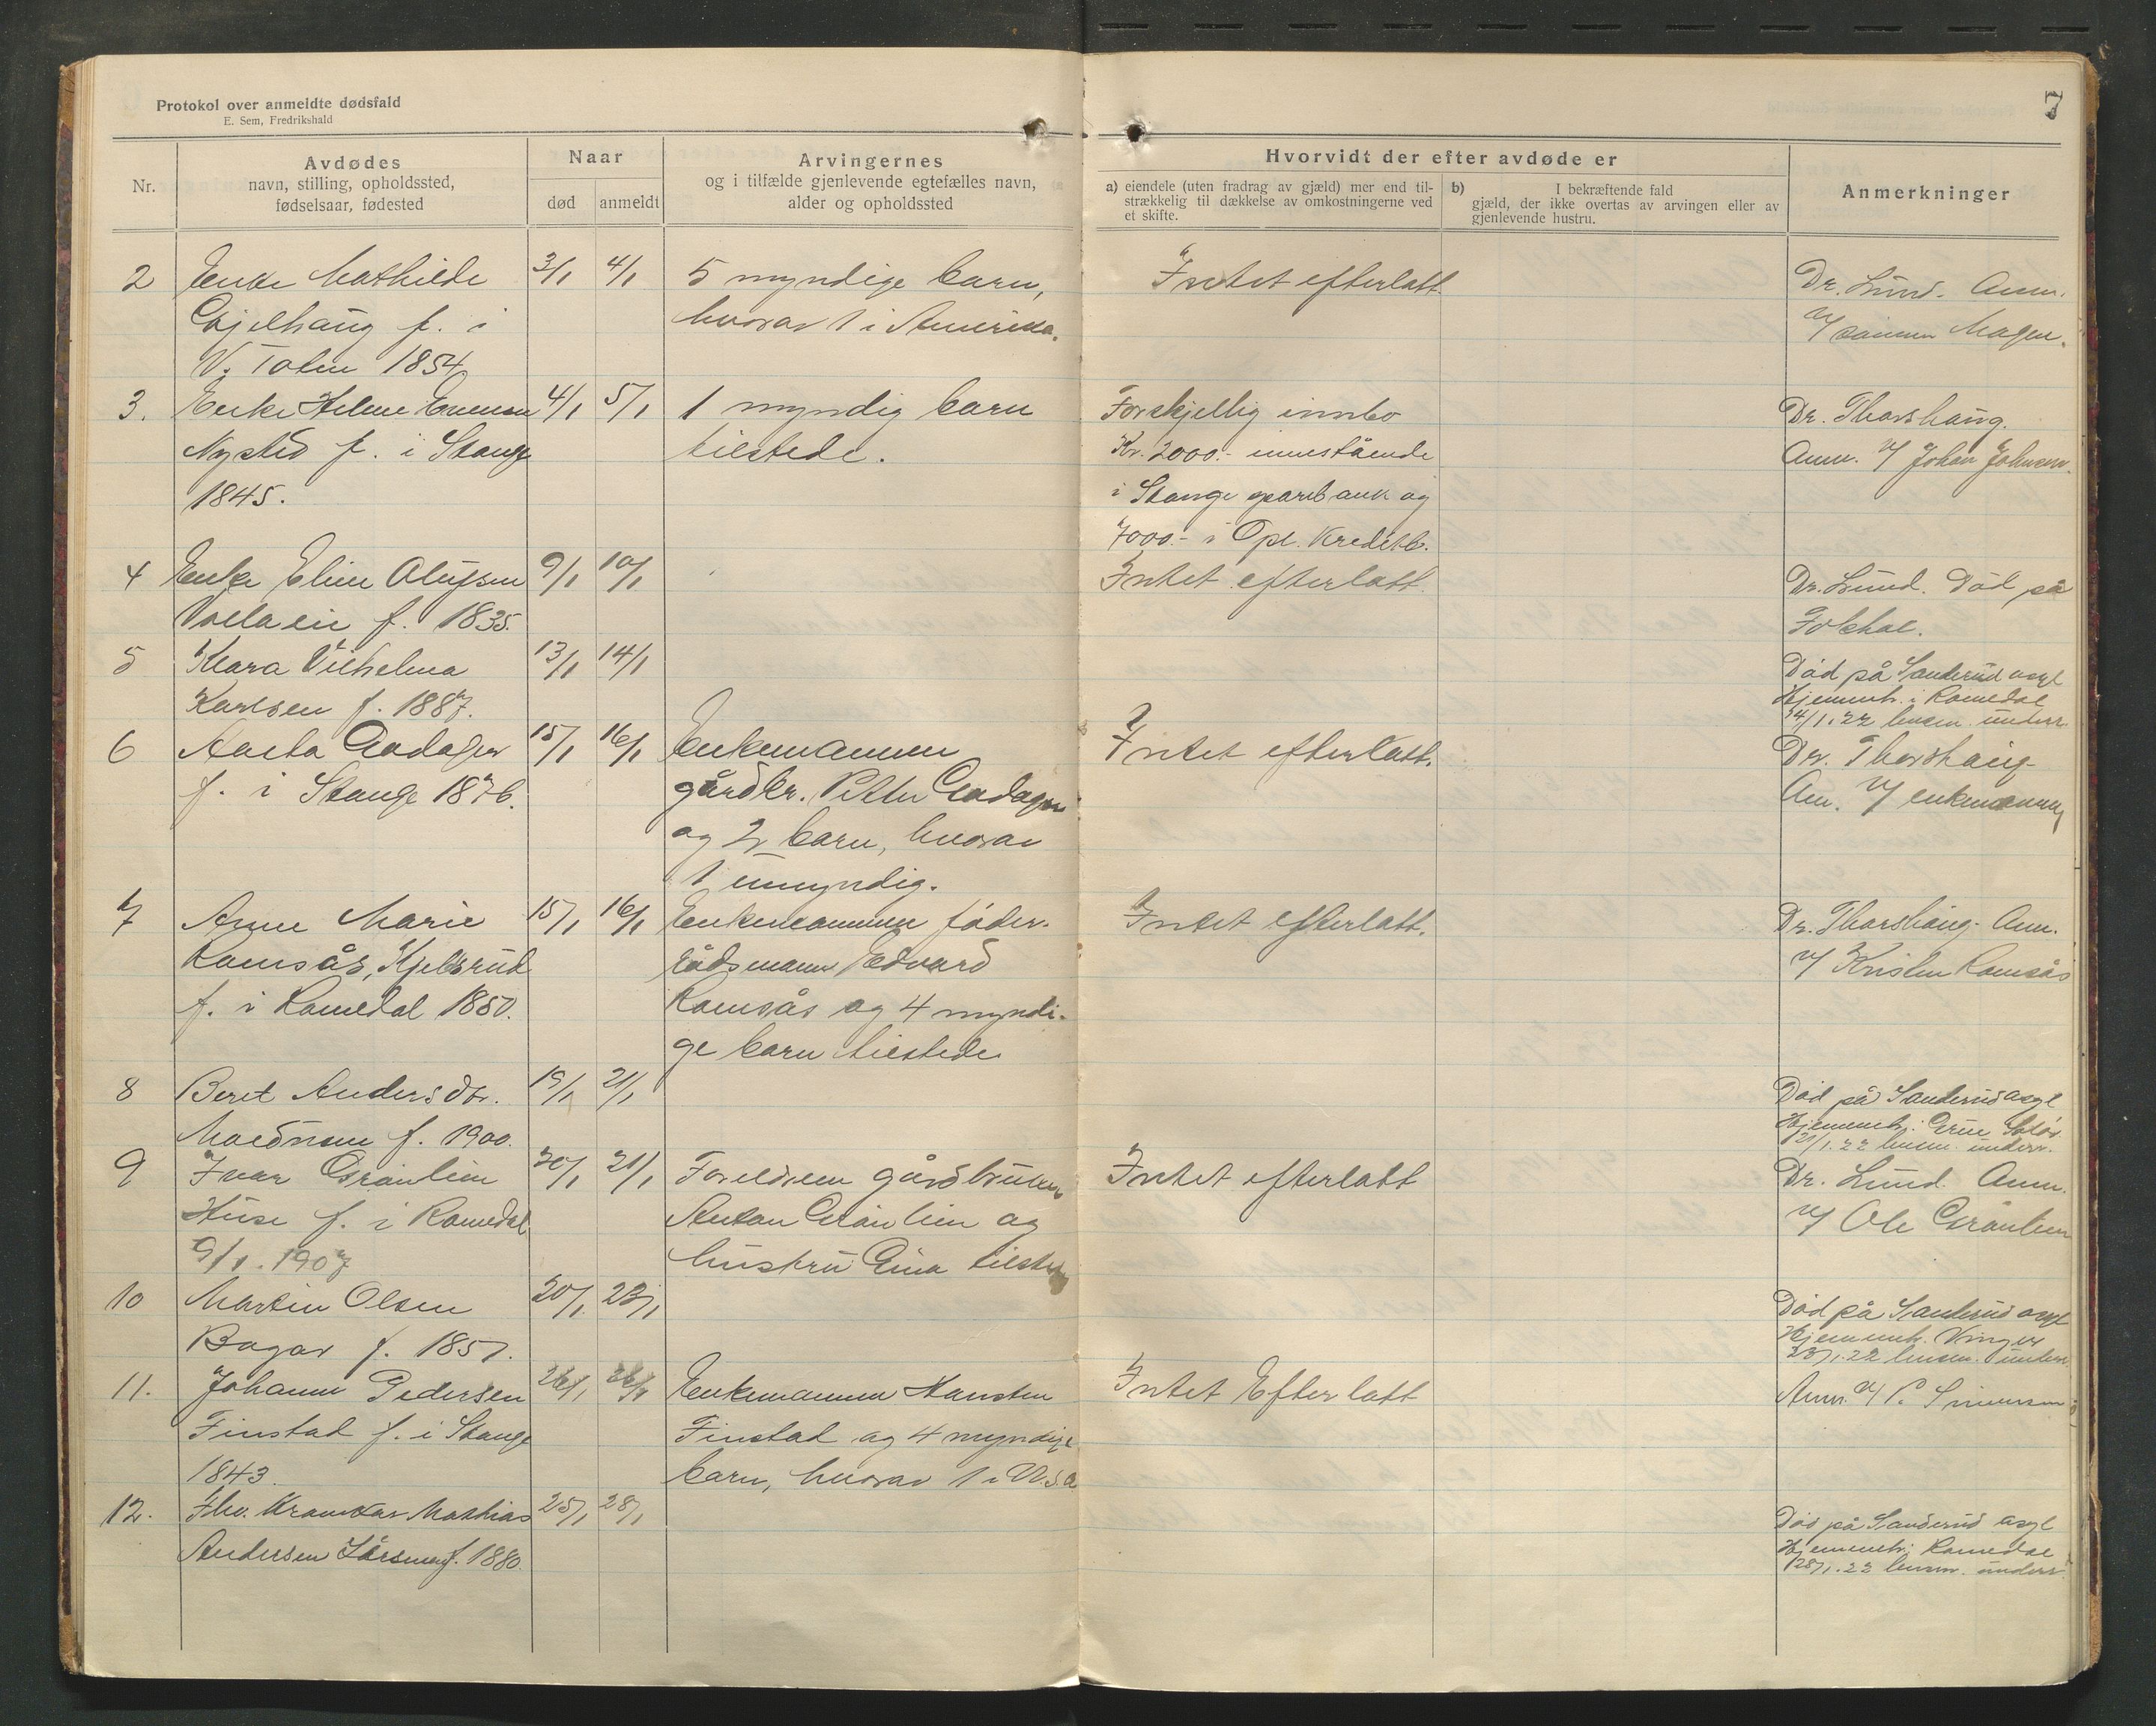 Protokol over anmeldte dødsfald
E. Sem, Fredrikshald
7
Nr.
Avdødes
navn, stilling, opholdssted,
fødselsaar, fødested
Naar
død
anmeldt
Arvingernes
og i tilfælde gjenlevende egtefælles navn,
alder og opholdssted
Hvorvidt der efter avdøde er
a) eiendele (uten fradrag av gjæld) mer end til-
strækkelig til dækkelse av omkostningerne ved
et skifte.
b) I bekræftende fald
gjæld, der ikke overtas av arvingen eller av
gjenlevende hustru.
Anmerkninger
2 Enke Mathilde 3/1 4/1 5 myndige barn, Intet efterlatt. Dr. Lund. Anm.
Gjelhaug f. i hvorav 1 i Amerika. v/ sønnen Magn.
V. Toten 1854.
3. Enke Helene Evensen 4/1 5/1 1 myndig barn Forskjellig innbo Dr. Thorshaug.
Nysted f. i Stange tilstede. Kr. 2000.- innestående Anm. v/ Johan Johnsen.
1845. i Stange sparebank og
7000.- i Opl. Kreditb.
4 Enke Eline Olufsen 9/1 10/1 Intet efterlatt. Dr. Lund. Død på
f. 1835.
5 Klara Vilhelma 13/1 14/1 Død på Sanderud asyl
Karlsen f. 1887. Hjemmeh. i Romedal
14/1.22 lensm. underr.
6 15/1 16/1 Enkemannen Intet efterlatt. Dr. Thorshaug
f. i Stange 1876. gårdbr. Petter Anm. v/ enkemannen
og 2 barn, hvorav
1 umyndig.
7 Anne Marie 15/1 16/1 Enkemannen føder- Intet efterlatt. Dr. Thorshaug. Anm.
Ramsås, Kjelsrud rådsmann Edvard v/ Kristen Ramsås
f. i Romedal 1850. Ramsås og 4 myndi-
ge barn tilstede
8 Beret Andersdtr. 19/1 21/1 Død på Sanderud asyl
f. 1900. Hjemmeh. i Grue Solør
21/1.22 lensm. underr.
9 Ivar Grønlien 20/1 21/1 Foreldrene gårdbruker Intet efterlatt Dr. Lund. Anm.
Huse f. i Romedal Anton Grønlien og v/ Ole Grønlien
9/1. 1907 hustru Gina tilstede
10 Martin Olsen 20/1. 23/1 Død på Sanderud asyl
Bogar f. 1857. Hjemmeh. Vinger
23/1.22 lensm. underr.
11. Johanne Pedersen 26/1 26/1 Enkemannen Hansten Intet Efterlatt Anm. v/ P. Simensen
Finstad f. i Stange Finstad og 4 myndige
1843. barn, hvorav 1 i U.S.A
12. Mathias 25/1 28/1 Død på Sanderud asyl
Andersen f. 1880. Hjemmeh. i Romedal
28/1.22 lensm. underr.